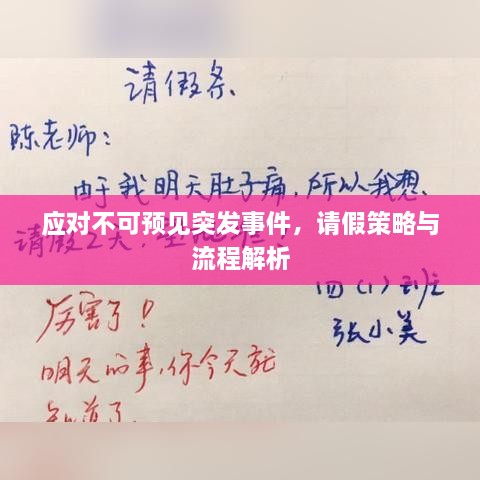 请假条
陈老师：
由于我明天肚子痛，所以我想
请假2天，
应对不可预见突发事件，请假策略与
流程解析
四(1)班
张小美
厉害了！
明天的事，你今天就
知道了。